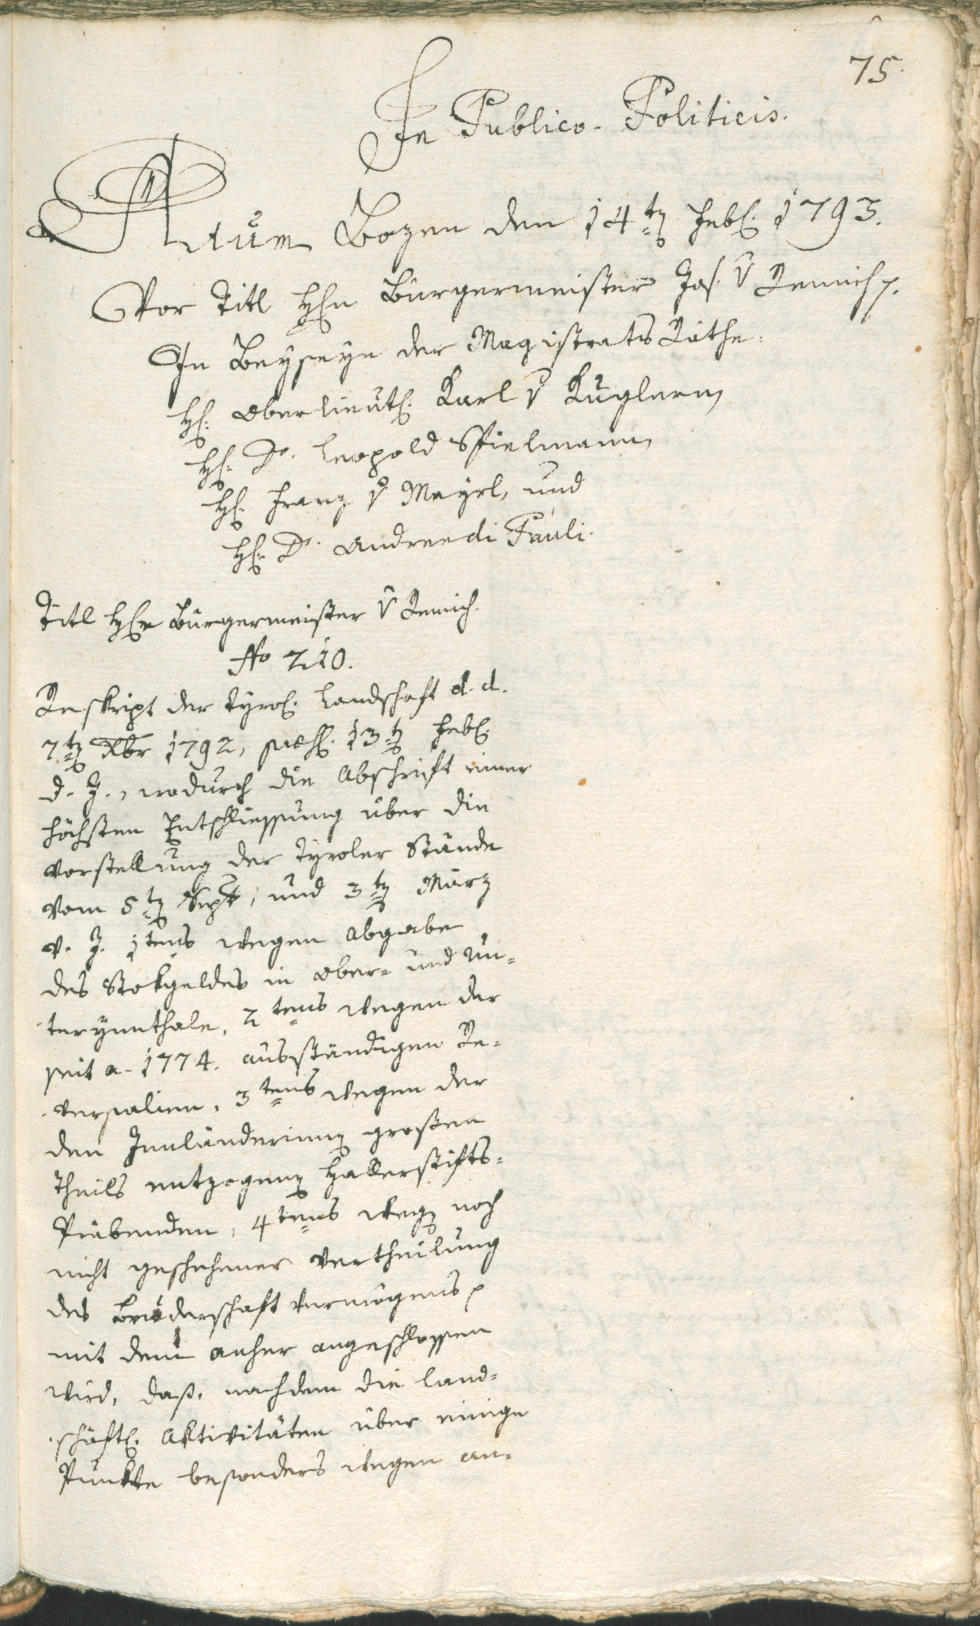 75.
In Publico-Politicis.
Actum Bozen den 14tn Feb. 1793.
Vor Titl Hrn Bürgermeister Jos. v Remich p.
In Beyseyn der Magistrats Räthe.
H. Oberlieut. Karl v Kuglern
H. Dr. Leopold Spielmann,
H. Franz v Mayrl, und
H. Dr. Andree di Pauli.
Titl Hr Bürgermeister v Remich.
No 210.
Reskript der Tyrol. Landschaft d. d.
7tn Xbr 1792, præs. 13tn Feb.
d. J., wodurch die Abschrift einer
höchsten Entschliessung über die
Vorstellung der Tyroler Stände
vom 5tn Sept, und 3tn März
v. J. 1tens wegen Abgabe
des Stokgeldes in Ober- und Un-
terynnthale, 2tens wegen der
seit a. 1774. ausständigen Re-
versalien, 3tens wegen der
den Innländerinnen großen
Theils entzogenen Hallerstifts-
Präbenden, 4tens wegen noch
nicht geschehener Vertheilung
des Bruderschaft Vermögens p
mit dem anher angeschlossen
wird, daß, nachdem die land-
schäftl. Aktivitäten über einige
Punkte besonders wegen an-